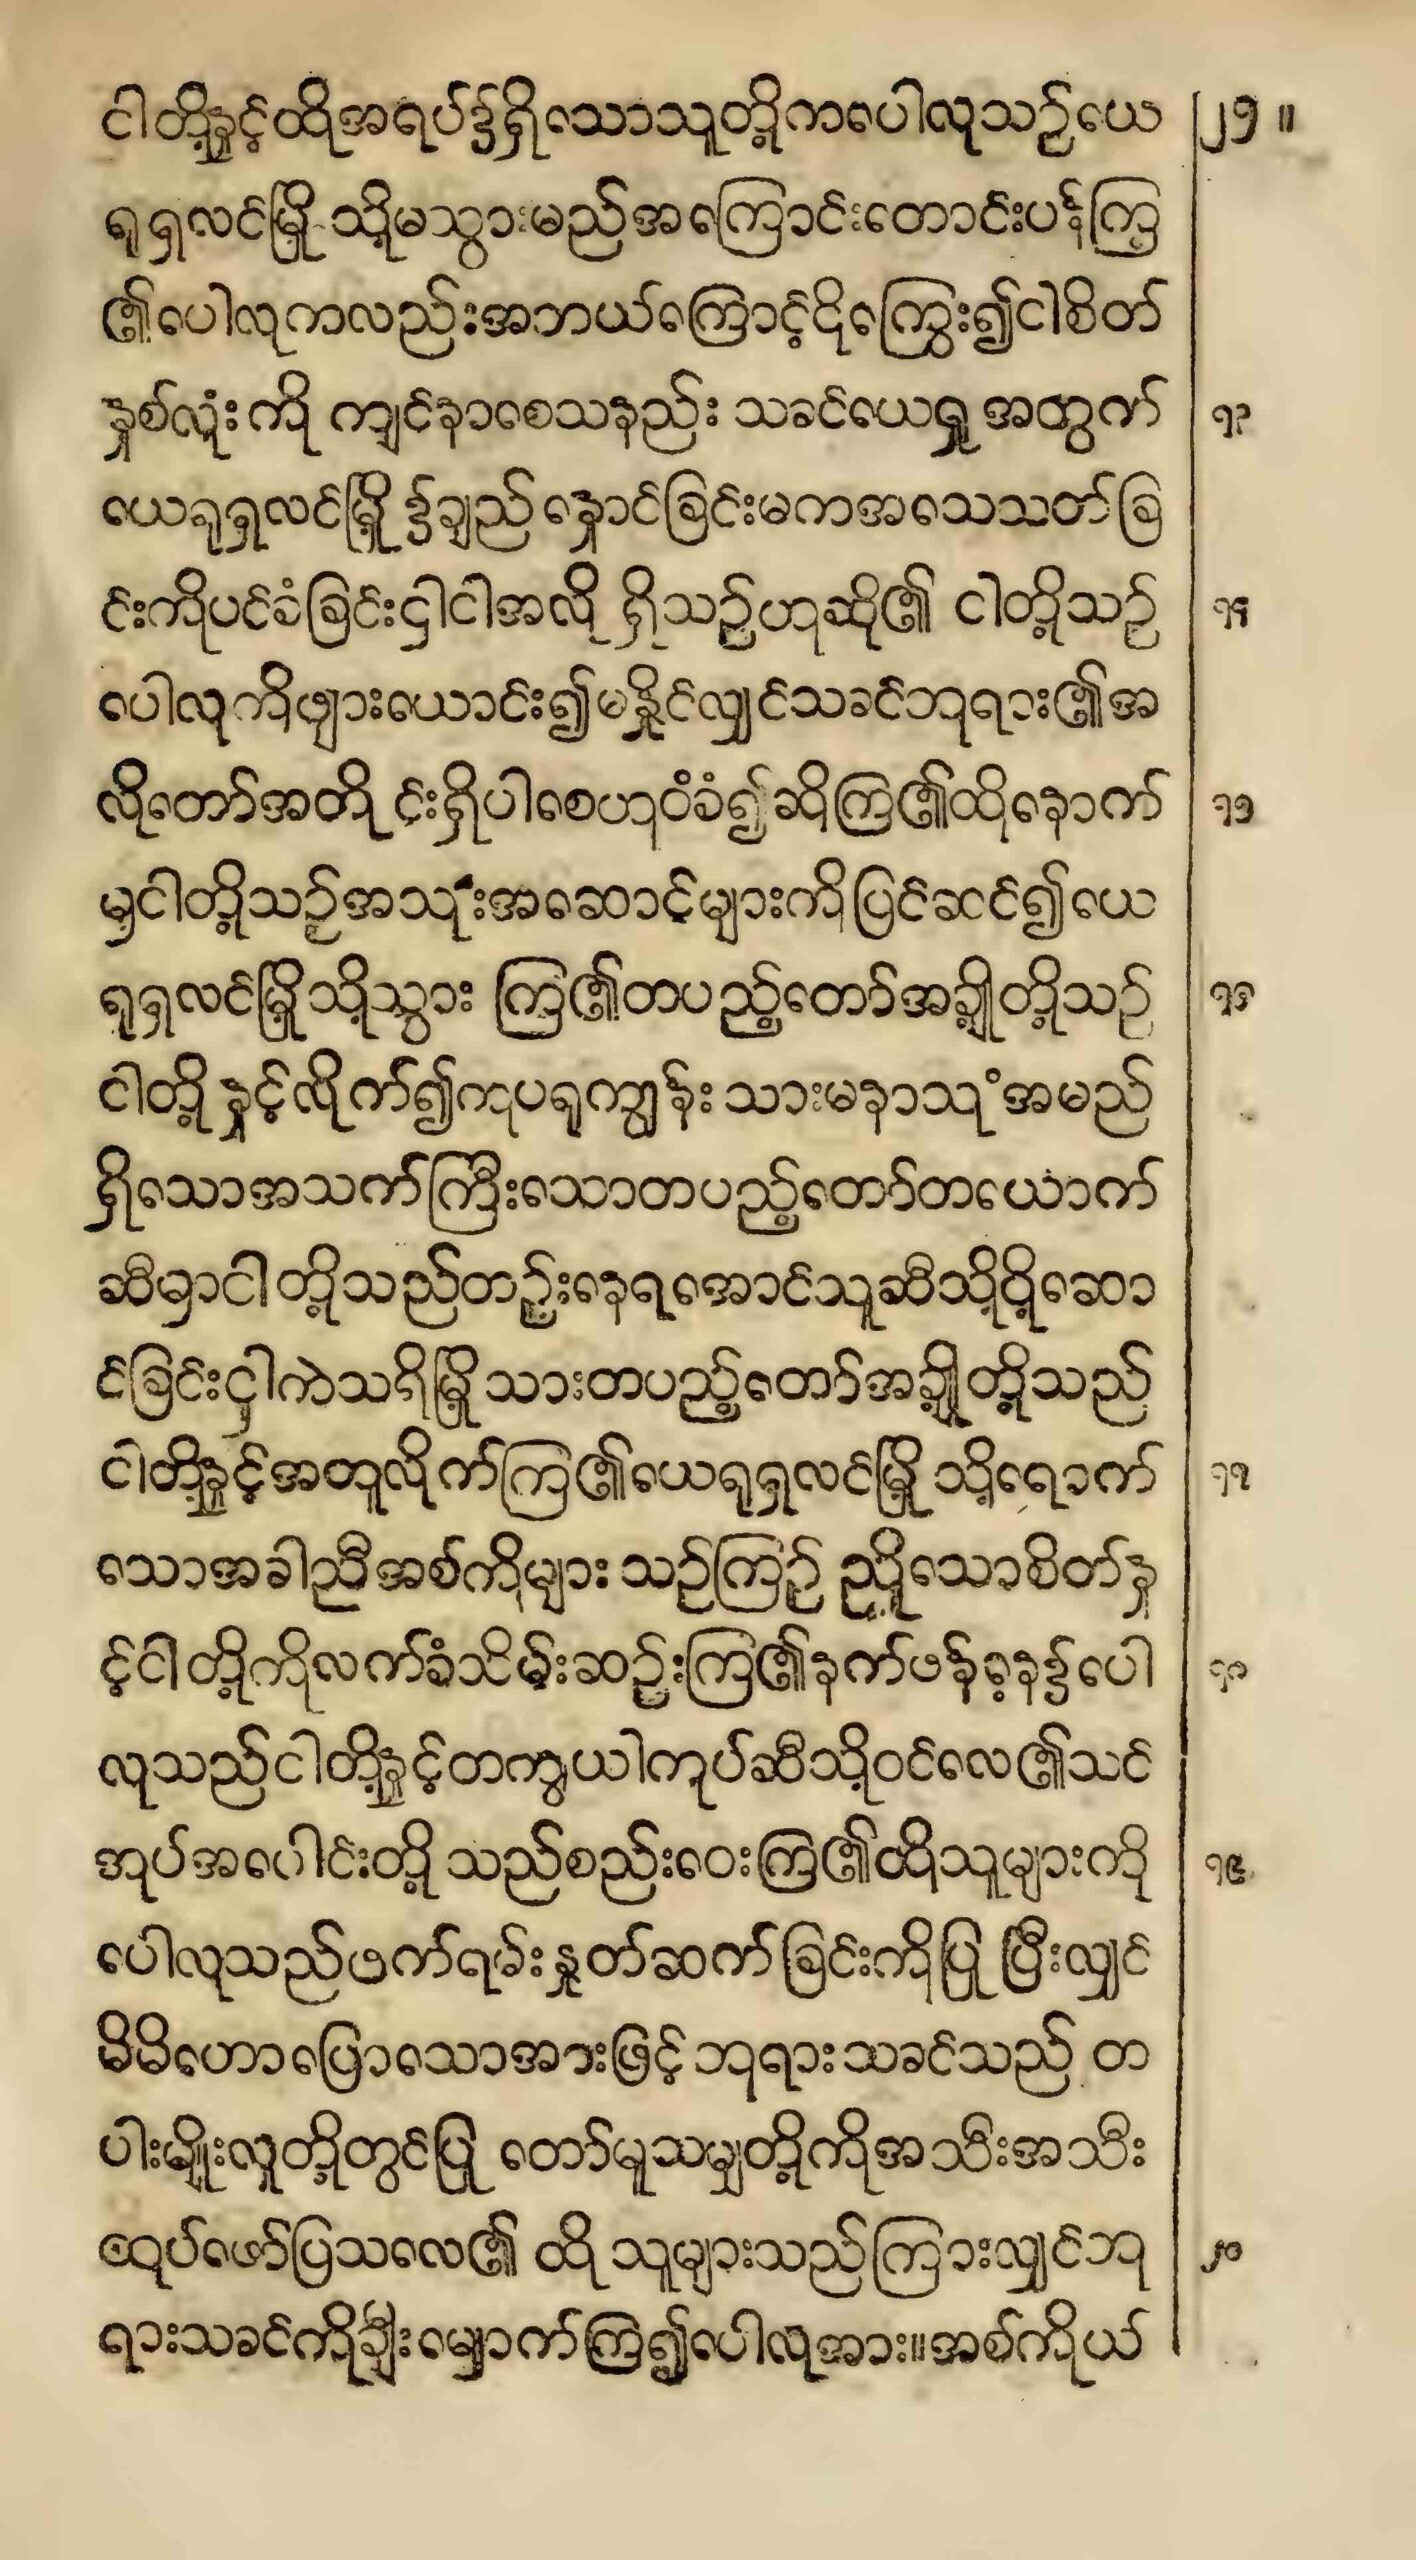 ငါတို့နှင့်ထိုအရပ်၌ရှိသောသူတို့ကပေါလုသဉ်ယေ ၂၅ ။
ရုရှလင်မြို့သို့မသွားမည်အကြောင်းတောင်းပန်ကြ
၏ပေါလုကလည်းအဘယ်ကြောင့်ငိုကြွေး၍ငါစိတ်
နှစ်လုံးကို ကျင်နာစေသနည်း သခင်ယေရှုအတွက် ၁၃
ယေရုရှလင်မြို့၌ချည်နှောင်ခြင်းမကအသေသတ်ခြ
င်းကိုပင်ခံခြင်းငှါငါအလို ရှိသဉ်ဟုဆို၏ ငါတို့သဉ် ၁၄
ပေါလုကိုဖျားယောင်း၍မနှိုင်လျှင်သခင်ဘုရား၏အ
လိုတော်အတိုင်းရှိပါစေဟုဝံခံ၍ဆိုကြ၏ထိုနောက် ၁၅
မှငါတို့သဉ်အသုံးအဆောင့်များကိုပြင်ဆင်၍ယေ
ရုရှလင်မြို့သို့သွား ကြ၏တပည့်တော်အချို့တို့သဉ် ၁၆
ငါတို့နှင့်လိုက်၍ကုပရုကျွန်းသားမနာသုံအမည်
ရှိသောအသက်ကြီးသောတပည့်တော်တယောက်
ဆီမှာငါတို့သည်တဉ်းနေရအောင်သူဆီသို့ပို့ဆော
င်ခြင်းငှါကဲသရိမြို့သားတပည့်တော်အချို့တို့သည်
ငါတို့နှင့်အတူလိုက်ကြ၏ယေရုရှလင်မြို့သို့ရောက် ၁၇
သောအခါညီအစ်ကိုများသဉ်ကြဉ်ညှိုသောစိတ်နှ
င့်ငါတို့ကိုလက်ခံသိမ်းဆဉ်းကြ၏နက်ဖန်နေ့၌ပေါ ၁၈
လုသည်ငါတို့နှင့်တကွယါကုပ်ဆီသို့ဝင်လေ၏သင်
အုပ်အပေါင်းတို့သည်စည်းဝေးကြ၏ထိုသူများကို ၁၉
ပေါလုသည်ဖက်ရမ်းနှုတ်ဆက်ခြင်းကိုပြုပြီးလျှင်
မိမိဟောပြောသောအားဖြင့်ဘုရားသခင်သည် တ
ပါးမျိုးလူတို့တွင်ပြု တော်မူသမျှတို့ကိုအသီးအသီး
ထုပ်ဖော်ပြသလေ၏ ထိုသူများသည်ကြားလျှင်ဘု ၂၀
ရားသခင်ကိုချီးမျှောက်ကြ၍ပေါလုအား။အစ်ကိုယ်